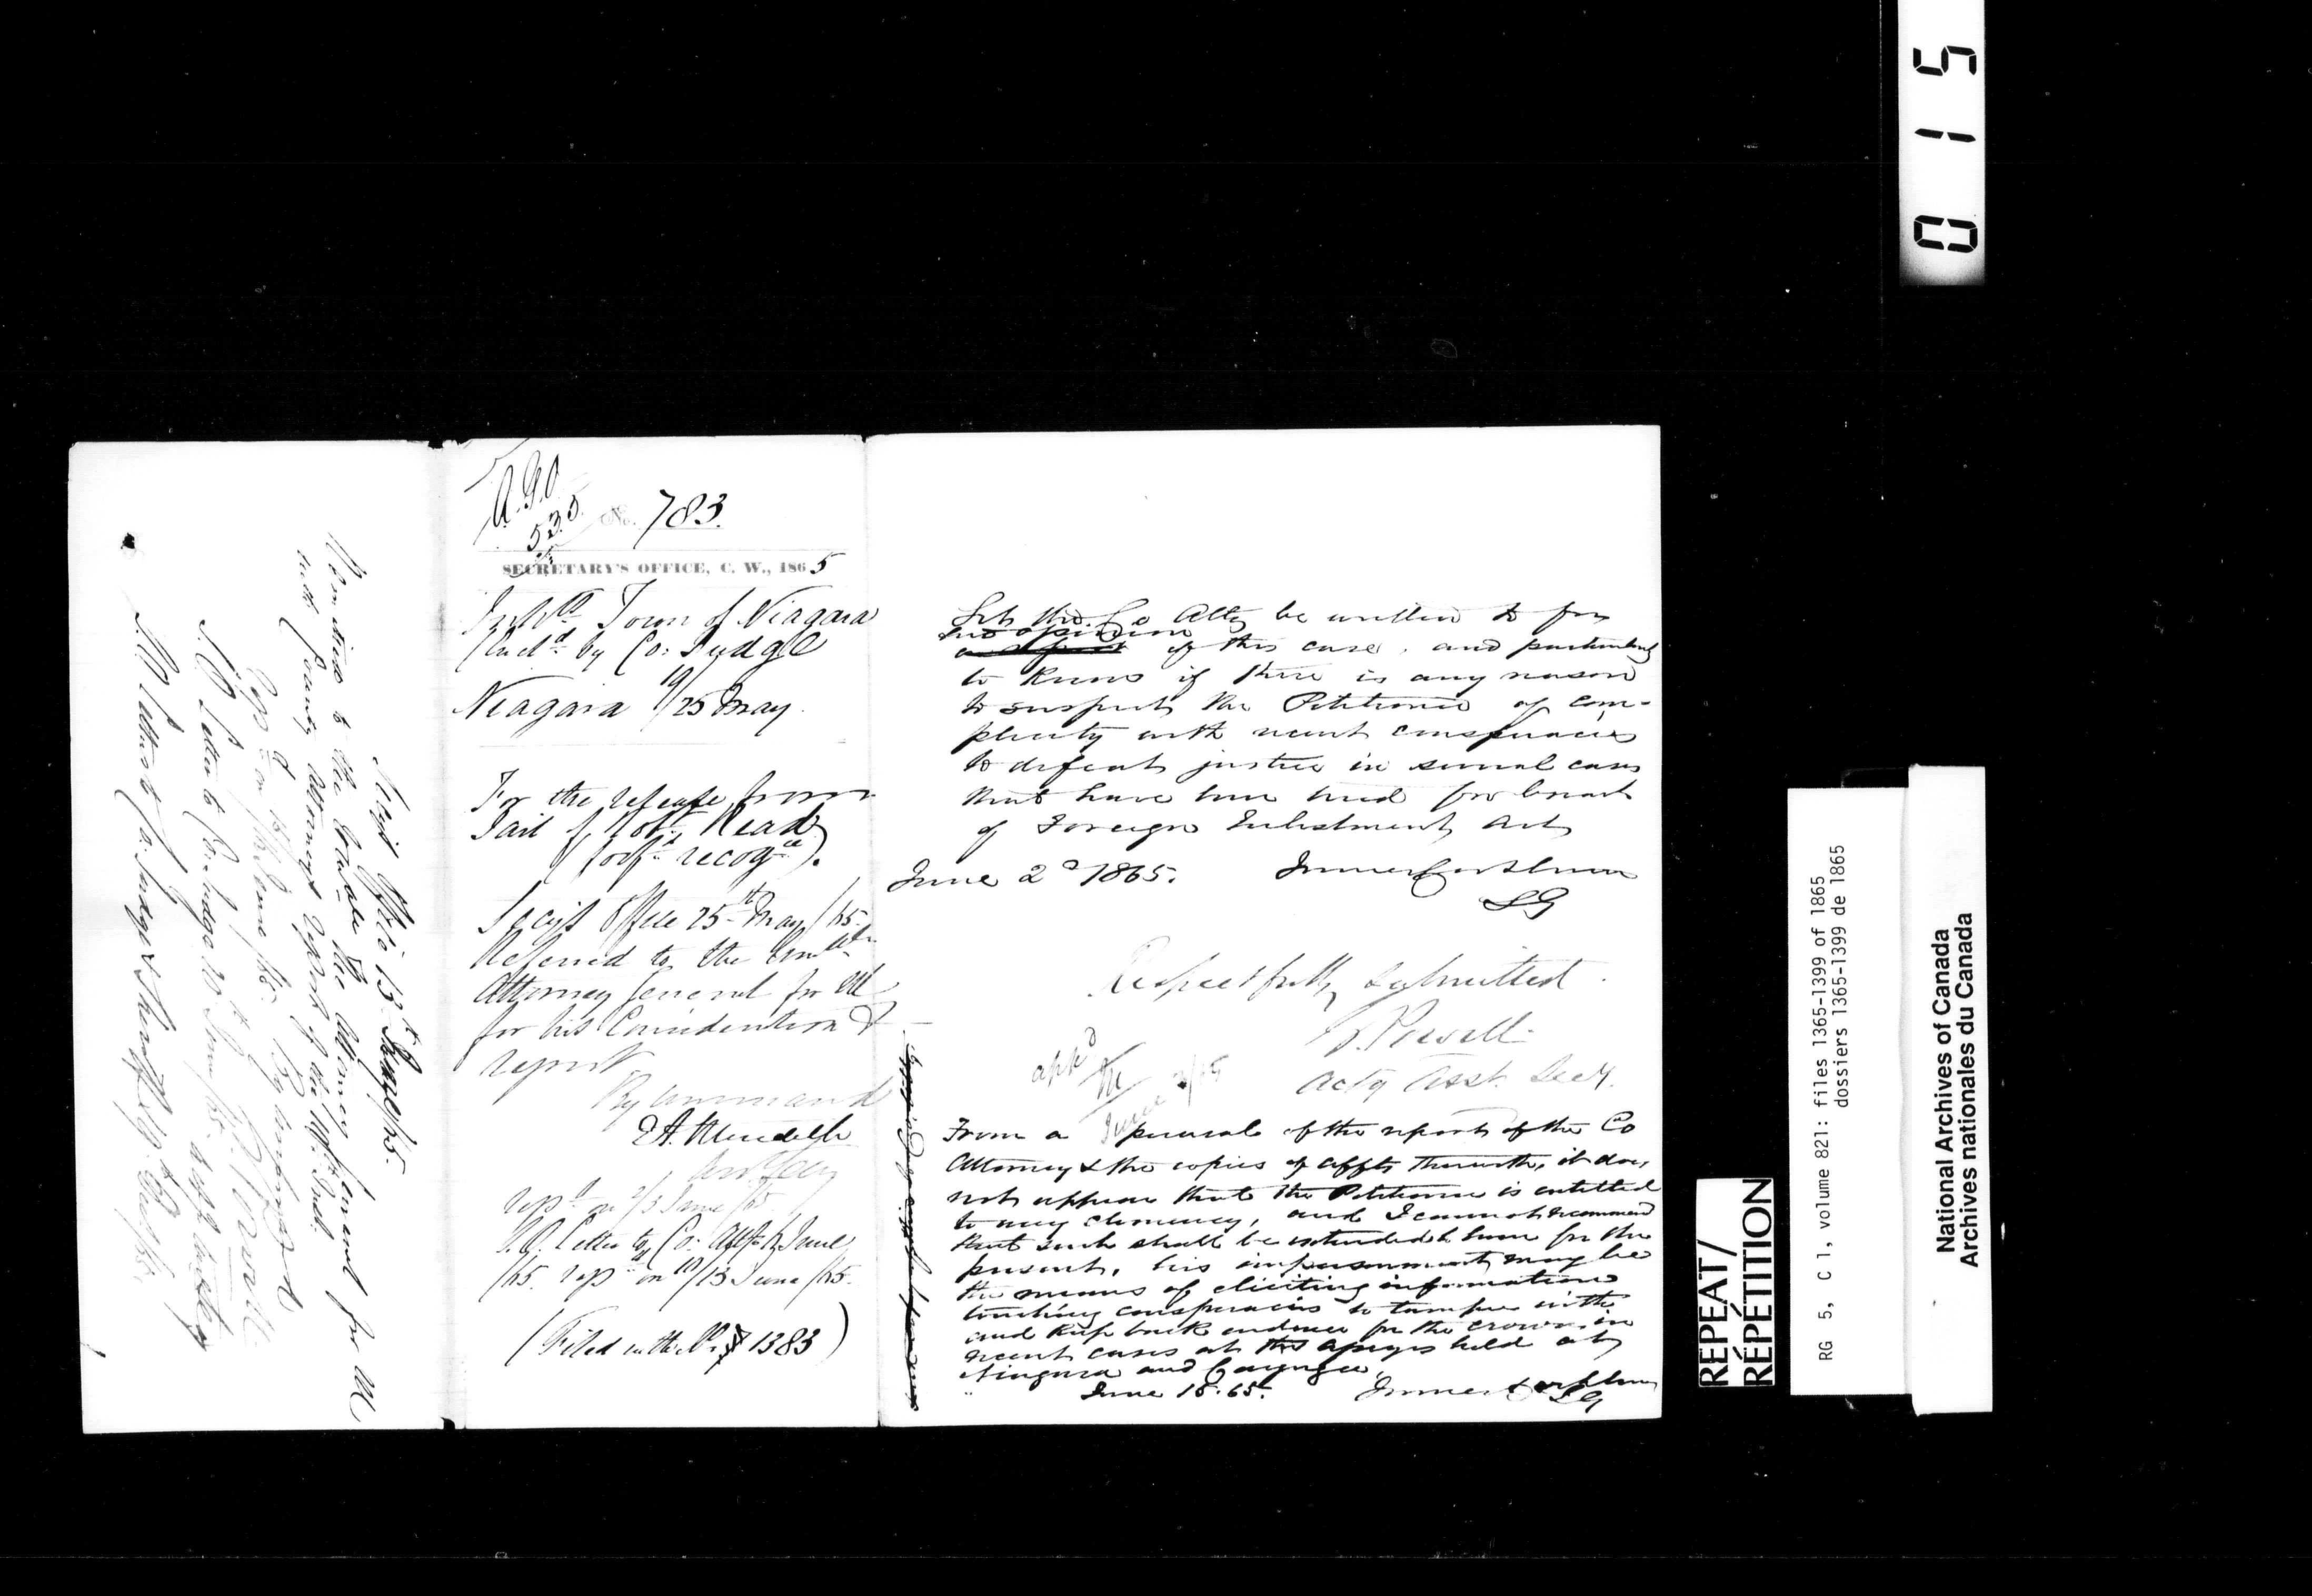 0 1 5
A.G.O
533
No. 783.
SECRETARY'S OFFICE, C. W., 1865
Inhts Town of Niagara
by Co: Judge
Niagara 19/25 May.
For the release from
Jail of Robt Ready
recogce).
Secy's Office 25th May/65.
Referred to the
Attorney General for
for his Consideration &
report
By Command
E.A. Meredith
repd on 2/3 June/65
S.O. Letter to Co: Atty June
/65. repd on 10/13 June/65.
(Filed with No 1383)
Secy's Office 13th June/65.
Resubmitted to the Attorney General for
with County Attorneys report
Repd on June /65. By command
S.O. Letter to Co. Judge 20th June/65.
S.O. Letters to Co. Judge & Sheriff
Let the Co Atty be written to for
his opinion
of this case, and particularly
to know if there is any reason
to suspect the Petitioner of com-
plicity with recent conspiracies
to defeat justice in several cases
that have been tried for breach
of Foreign Enlistment Act
June 2d 1865. James Cockburn
SG
Respectfully submitted.
Powell
Actg Asst. Secy.
appd
June 3/65
From a perusal of the report of the Co
Attorney & the copies of affts therewith, it does
not appear that the Petitioner is entitled
to any clemency, and I cannot recommend
that such shall be extended to him for the
present, his imprisonment may be
the means of eliciting information
touching conspiracies to tamper with
and keep back evidence for the crown in
recent cases at the assizes held at
Niagara and Cayuga.
June 15. 65. James Cockburn
SG
REPEAT/
RÉPÉTITION
RG 5, C 1, volume 821: files 1365-1399 of 1865
dossiers 1365-1399 de 1865
National Archives of Canada
Archives nationales du Canada